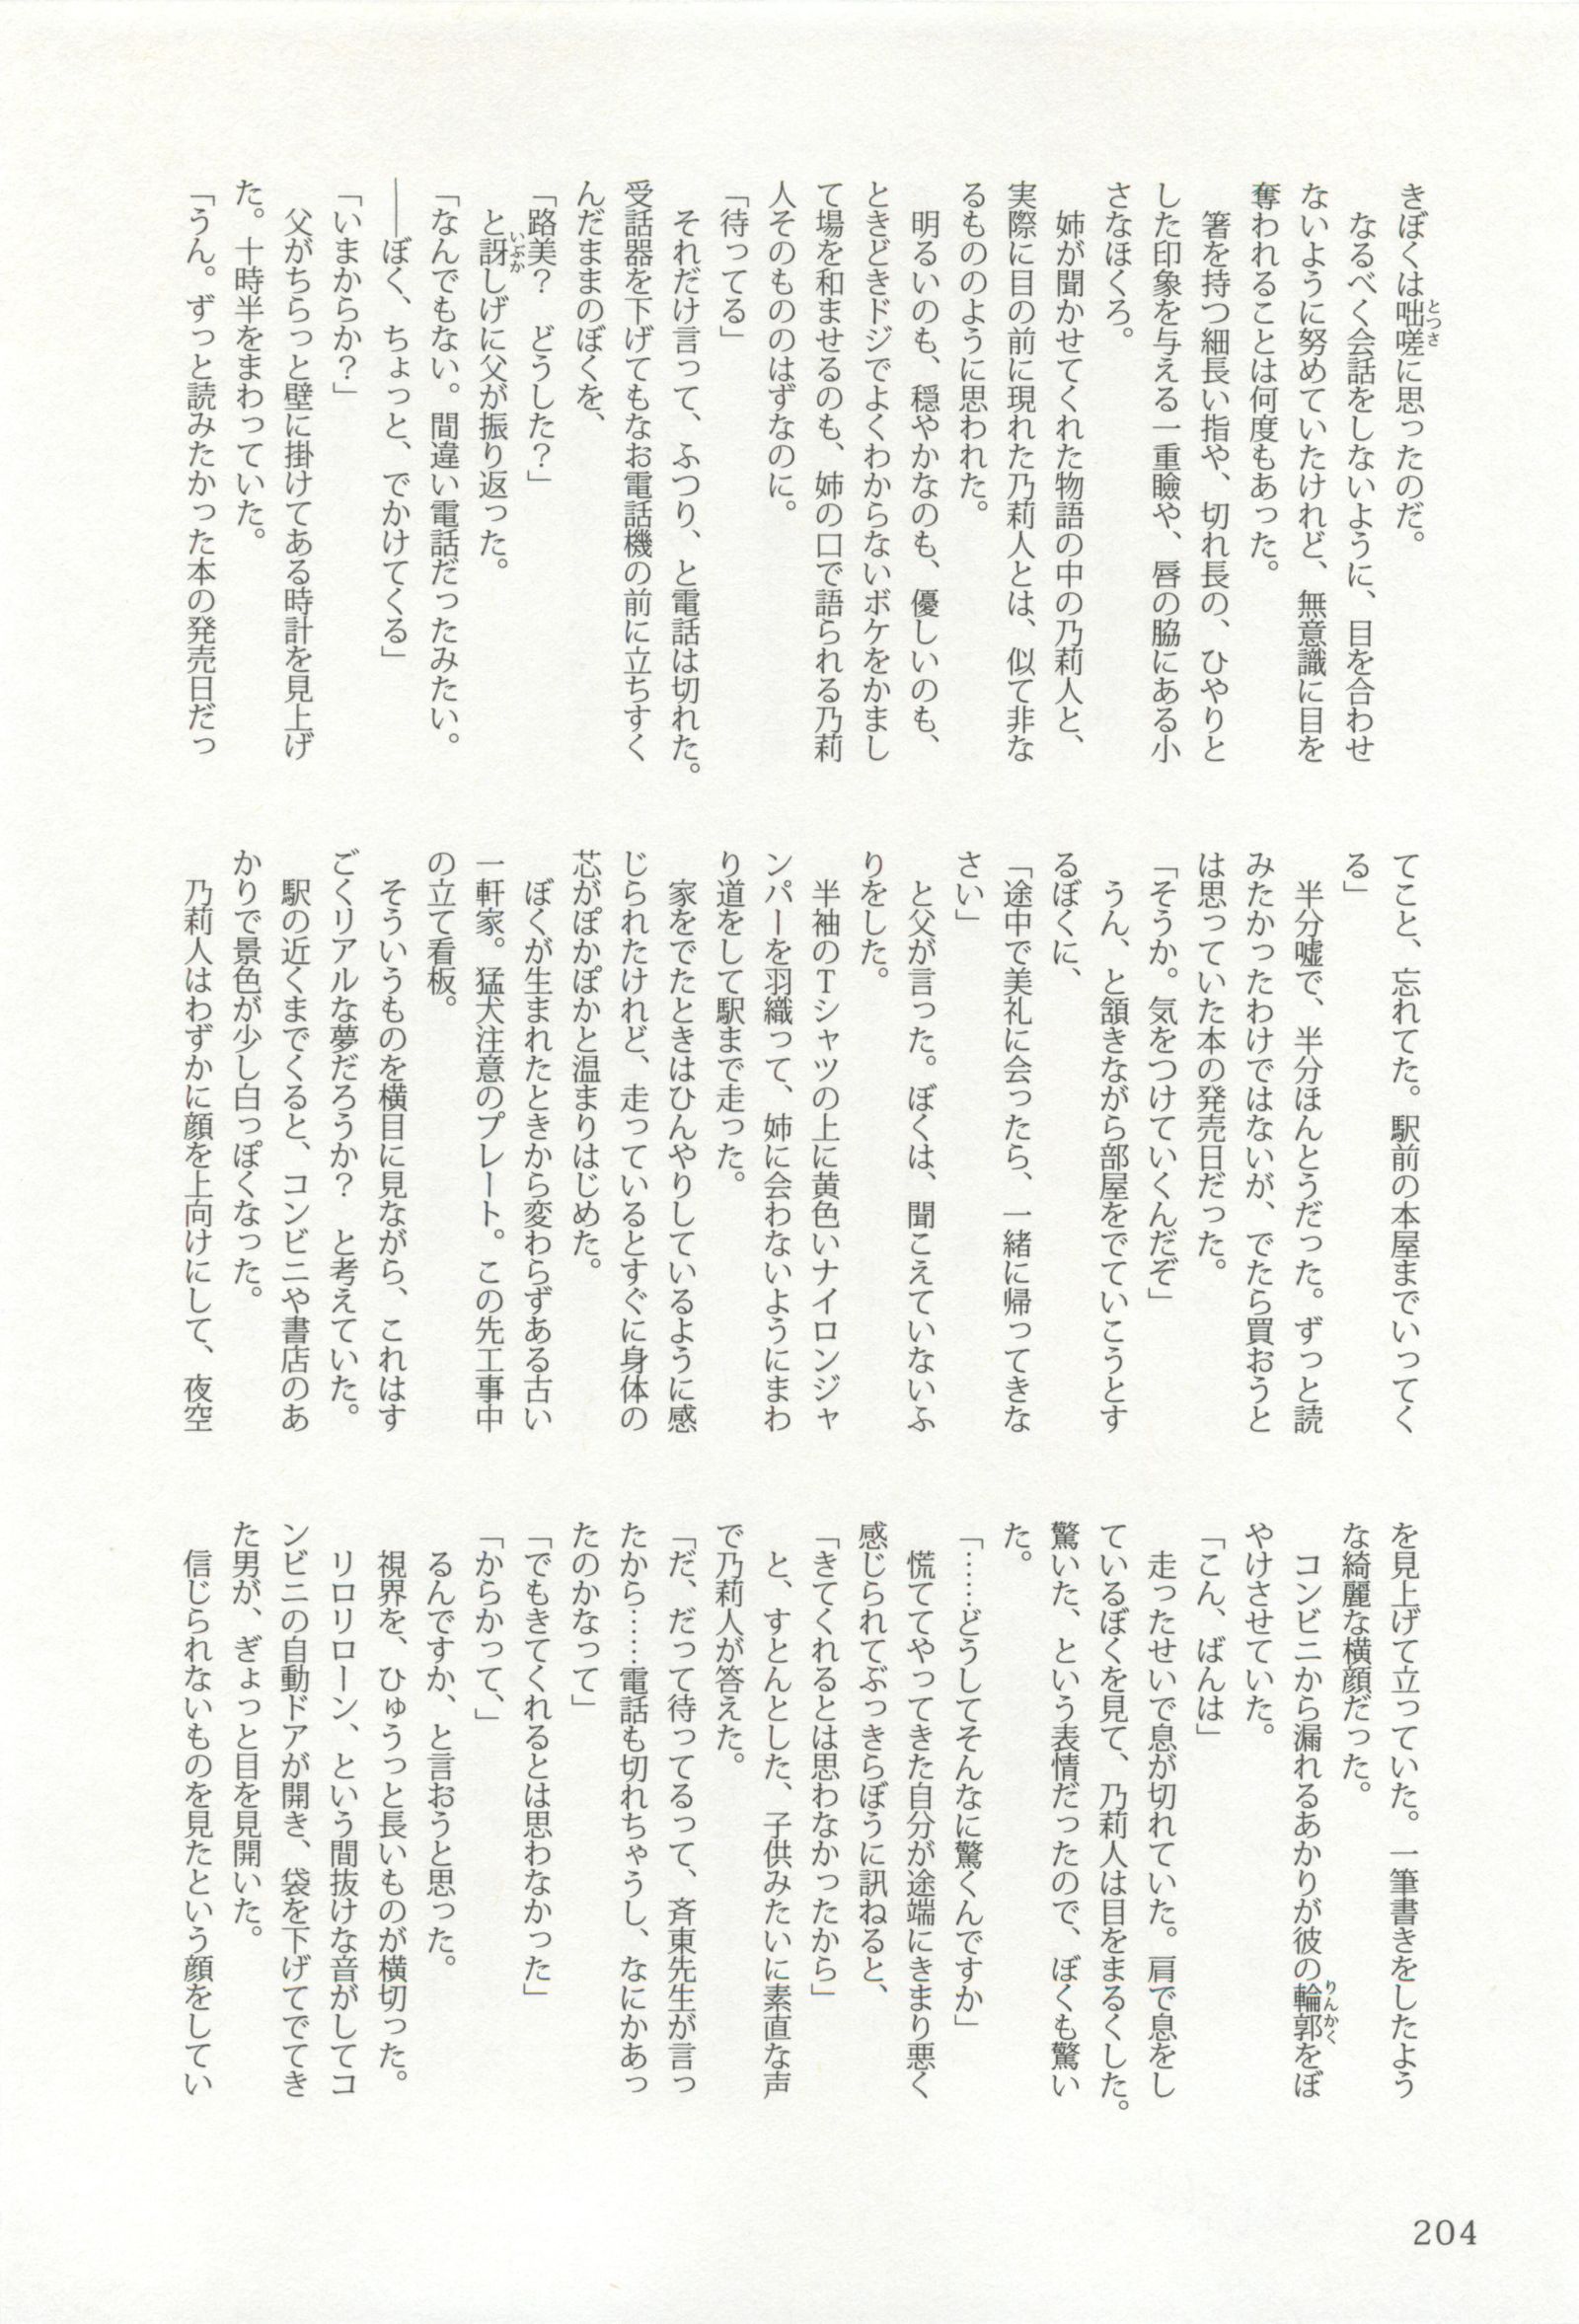 きぼくは咄嗟に思ったのだ。
　なるべく会話をしないように、目を合わせ
ないように努めていたけれど、無意識に目を
奪われることは何度もあった。
　箸を持つ細長い指や、切れ長の、ひやりと
した印象を与える一重瞼や、唇の脇にある小
さなほくろ。
　姉が聞かせてくれた物語の中の乃莉人と、
実際に目の前に現れた乃莉人とは、似て非な
るもののように思われた。
　明るいのも、穏やかなのも、優しいのも、
ときどきドジでよくわからないボケをかまし
て場を和ませるのも、姉の口で語られる乃莉
人そのもののはずなのに。
「待ってる」
　それだけ言って、ふつり、と電話は切れた。
受話器を下げてもなお電話機の前に立ちすく
んだままのぼくを、
「路美？　どうした？」
　と訝しげに父が振り返った。
「なんでもない。間違い電話だったみたい。
――ぼく、ちょっと、でかけてくる」
「いまからか？」
　父がちらっと壁に掛けてある時計を見上げ
た。十時半をまわっていた。
「うん。ずっと読みたかった本の発売日だっ
てこと、忘れてた。駅前の本屋までいってく
る」
　半分嘘で、半分ほんとうだった。ずっと読
みたかったわけではないが、でたら買おうと
は思っていた本の発売日だった。
「そうか。気をつけていくんだぞ」
　うん、と頷きながら部屋をでていこうとす
るぼくに、
「途中で美礼に会ったら、一緒に帰ってきな
さい」
　と父が言った。ぼくは、聞こえていないふ
りをした。
　半袖のTシャツの上に黄色いナイロンジャ
ンパーを羽織って、姉に会わないようにまわ
り道をして駅まで走った。
　家をでたときはひんやりしているように感
じられたけれど、走っているとすぐに身体の
芯がぽかぽかと温まりはじめた。
　ぼくが生まれたときから変わらずある古い
一軒家。猛犬注意のプレート。この先工事中
の立て看板。
　そういうものを横目に見ながら、これはす
ごくリアルな夢だろうか？　と考えていた。
　駅の近くまでくると、コンビニや書店のあ
かりで景色が少し白っぽくなった。
　乃莉人はわずかに顔を上向けにして、夜空
を見上げて立っていた。一筆書きをしたよう
な綺麗な横顔だった。
　コンビニから漏れるあかりが彼の輪郭をぼ
やけさせていた。
「こん、ばんは」
　走ったせいで息が切れていた。肩で息をし
ているぼくを見て、乃莉人は目をまるくした。
驚いた、という表情だったので、ぼくも驚い
た。
「……どうしてそんなに驚くんですか」
　慌ててやってきた自分が途端にきまり悪く
感じられてぶっきらぼうに訊ねると、
「きてくれるとは思わなかったから」
　と、すとんとした、子供みたいに素直な声
で乃莉人が答えた。
「だ、だって待ってるって、斉東先生が言っ
たから……電話も切れちゃうし、なにかあっ
たのかなって」
「でもきてくれるとは思わなかった」
「からかって、」
　るんですか、と言おうと思った。
　視界を、ひゅうっと長いものが横切った。
　リロリローン、という間抜けな音がしてコ
ンビニの自動ドアが開き、袋を下げてでてき
た男が、ぎょっと目を見開いた。
　信じられないものを見たという顔をしてい
とっさ
いぶか
りんかく
204